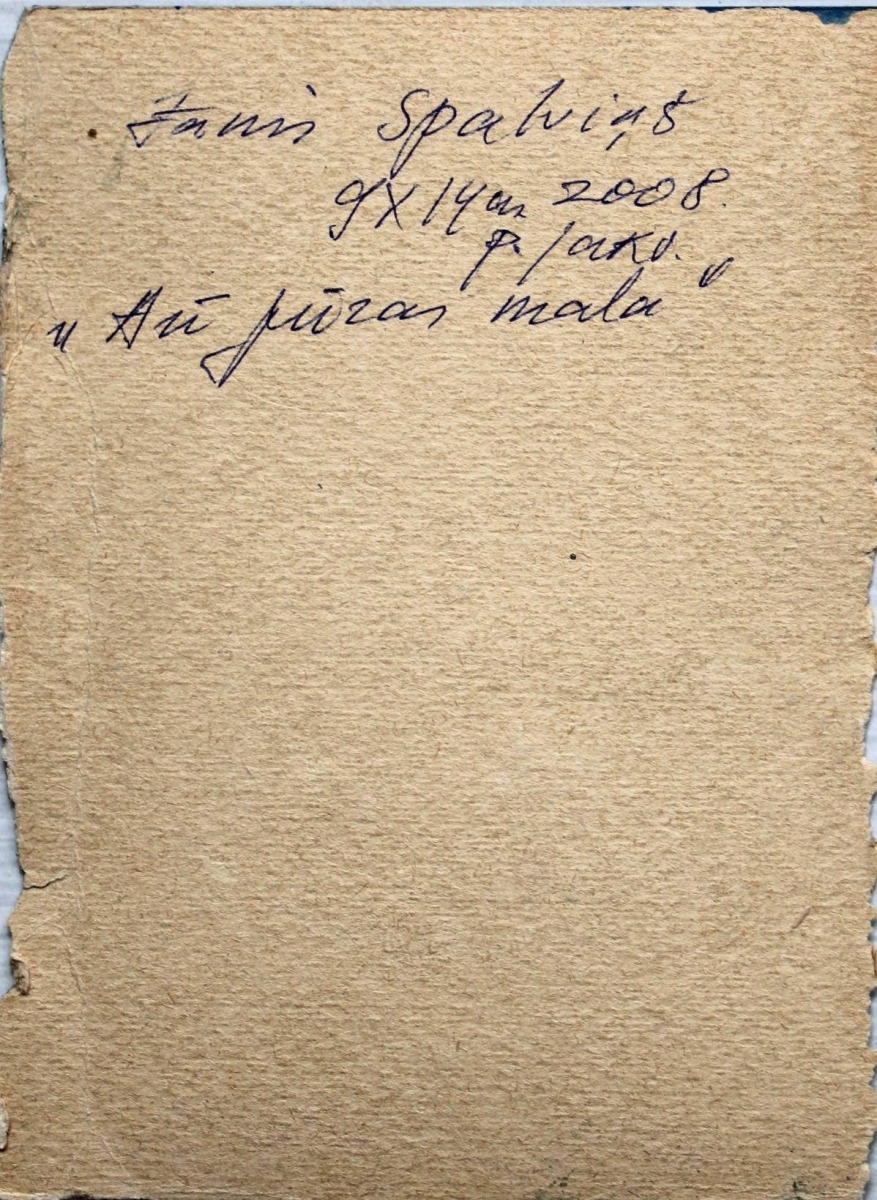 Janis Spalviņš
9X14cm 2008.
p. / akv.
„ Aiz jūras malā "